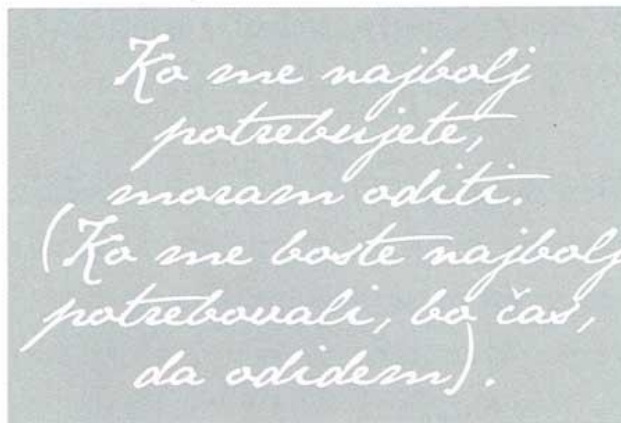 Ko me najbolj
potrebujete,
moram oditi.
(Ko me boste najbolj
potrebovali, bo čas,
da odidem).